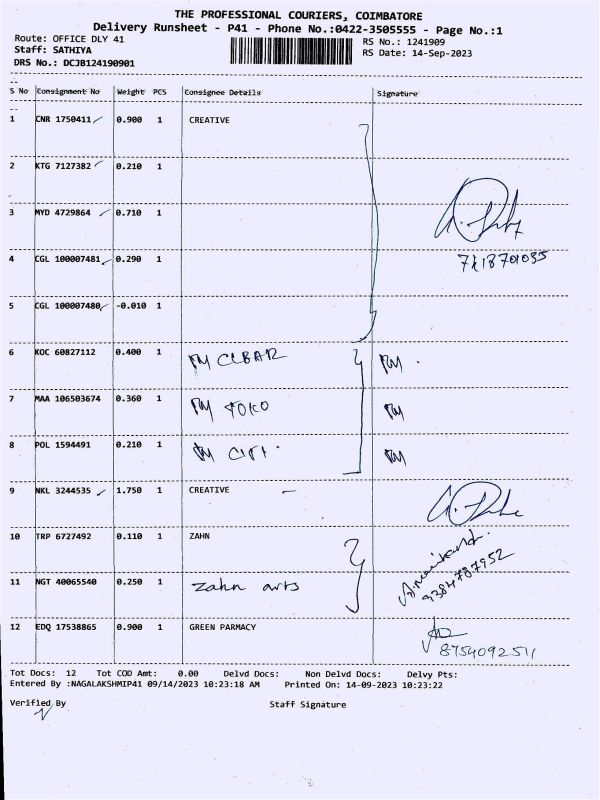 THE PROFESSIONAL COURIERS, COIMBATORE
Delivery Runsheet - P41 - Phone No.:0422-3505555 - Page No.:1
Route: OFFICE DLY 41
RS No.: 1241909
Staff: SATHIYA
RS Date: 14-Sep-2023
DRS No.: DCJB124190901
S No Consignment No Weight PCS Consignee Details Signature
1 CNR 1750411 0.900 1 CREATIVE
2 KTG 7127382 0.210 1
3 MYD 4729864 0.710 1
4 CGL 100007481 0.290 1
5 CGL 100007480 -0.010 1
6 KOC 60827112 0.400 1
7 MAA 106503674 0.360 1
8 POL 1594491 0.210 1
9 NKL 3244535 1.750 1 CREATIVE
10 TRP 6727492 0.110 1 ZAHN
11 NGT 40065540 0.250 1 zahn arts
9384787952
12 EDQ 17538865 0.900 1 GREEN PARMACY
Tot Docs: 12 Tot COD Amt: 0.00 Delvd Docs: Non Delvd Docs: Delvy Pts:
Entered By :NAGALAKSHMIP41 09/14/2023 10:23:18 AM Printed On: 14-09-2023 10:23:22
Verified By Staff Signature